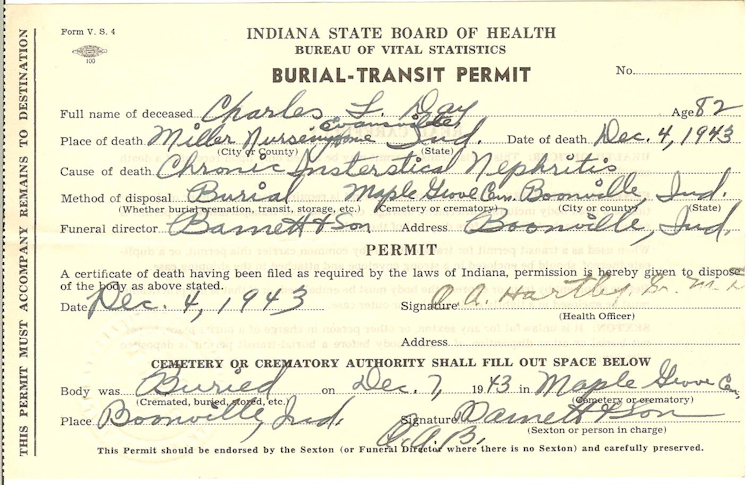 Form V. S. 4
INDIANA STATE BOARD OF HEALTH
BUREAU OF VITAL STATISTICS
100
BURIAL-TRANSIT PERMIT
No.
Full name of deceased Charles L. Day Age 82
Evansville
Place of death Miller Nursing Home Ind. Date of death Dec. 4, 1943
(City or County) (State)
Cause of death Chronic Insterstical Nephritis
Method of disposal Burial Maple Grove Cem. Boonville, Ind.
(Whether burial cremation, transit, storage, etc.) (Cemetery or crematory) (City or county) (State)
Funeral director Barnett & Son Address Boonville, Ind.
PERMIT
A certificate of death having been filed as required by the laws of Indiana, permission is hereby given to dispose
of the body as above stated.
Date Dec. 4, 1943 Signature A. Hartley M. D
(Health Officer)
Address
CEMETERY OR CREMATORY AUTHORITY SHALL FILL OUT SPACE BELOW
Body was Buried on Dec. 7, 1943 in Maple Grove Cem.
(Cremated, buried, stored, etc.) (Cemetery or crematory)
Place Boonville, Ind. Signature Barnett & Son
(Sexton or person in charge)
This Permit should be endorsed by the Sexton (or Funeral Director where there is no Sexton) and carefully preserved.
THIS PERMIT MUST ACCOMPANY REMAINS TO DESTINATION